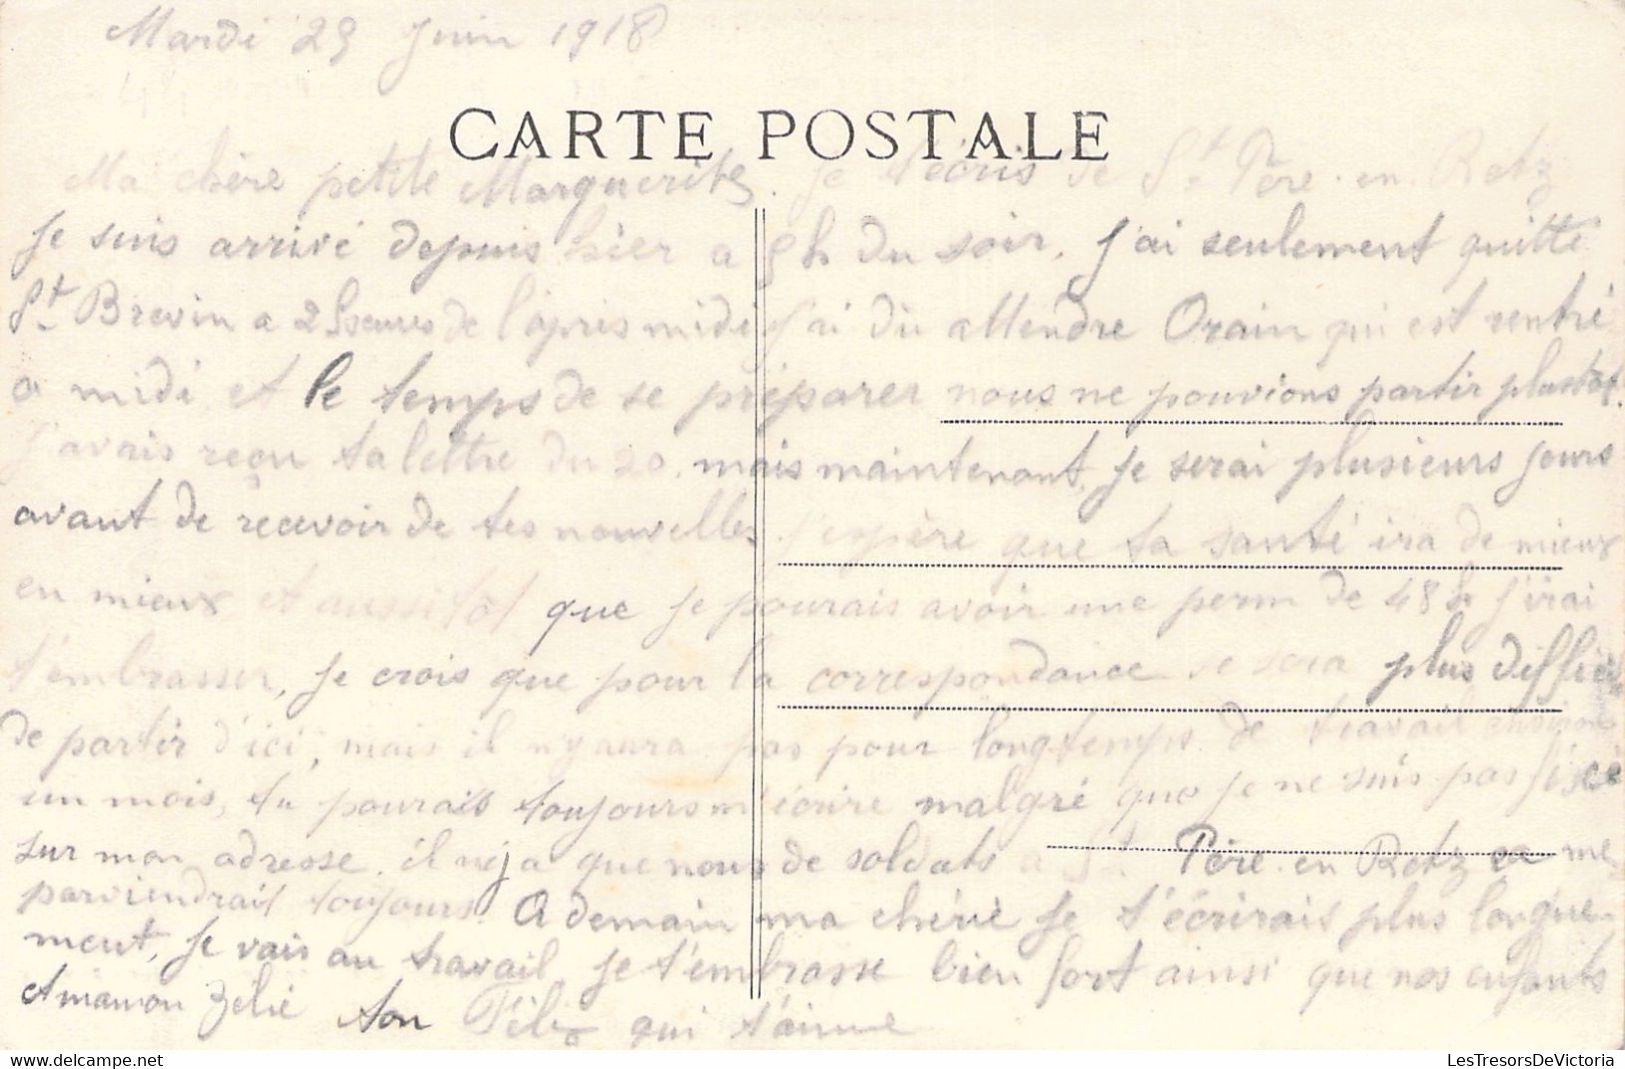 Mardi 25 Juin 1918
CARTE POSTALE
Ma chère petite Marguerite. Je t'écris de St Père. en. Retz
Je suis arrivé depuis hier a 5h du soir. J'ai seulement quitté
St Brevin a 2 heures de l'après midi j'ai du attendre Orain qui est rentré
a midi et le temps de se préparer nous ne pouvions partir plustot.
J'avais reçu ta lettre du 20. mais maintenant, je serai plusieurs jours
avant de recevoir de tes nouvelles. J'espère que ta santé ira de mieux
en mieux et aussitot que je pourais avoir une perm de 48 h J'irai
t'embrasser, Je crois que pour la correspondance se sera plus diffici
de partir d'ici, mais il n'y aura pas pour longtemps. de travail environ
un mois, tu pourais toujours m'écrire malgré que je ne suis pas fixé
sur mon adresse. il n'y a que nous de soldats a St Père. en Retz ca me
parviendrait toujours. A demain ma chérie Je t'écrirais plus longue
ment, Je vais au travail, je t'embrasse bien fort ainsi que nos enfants
et maman Zelie ton Félix qui t'aime
LesTresorsDeVictoria.com